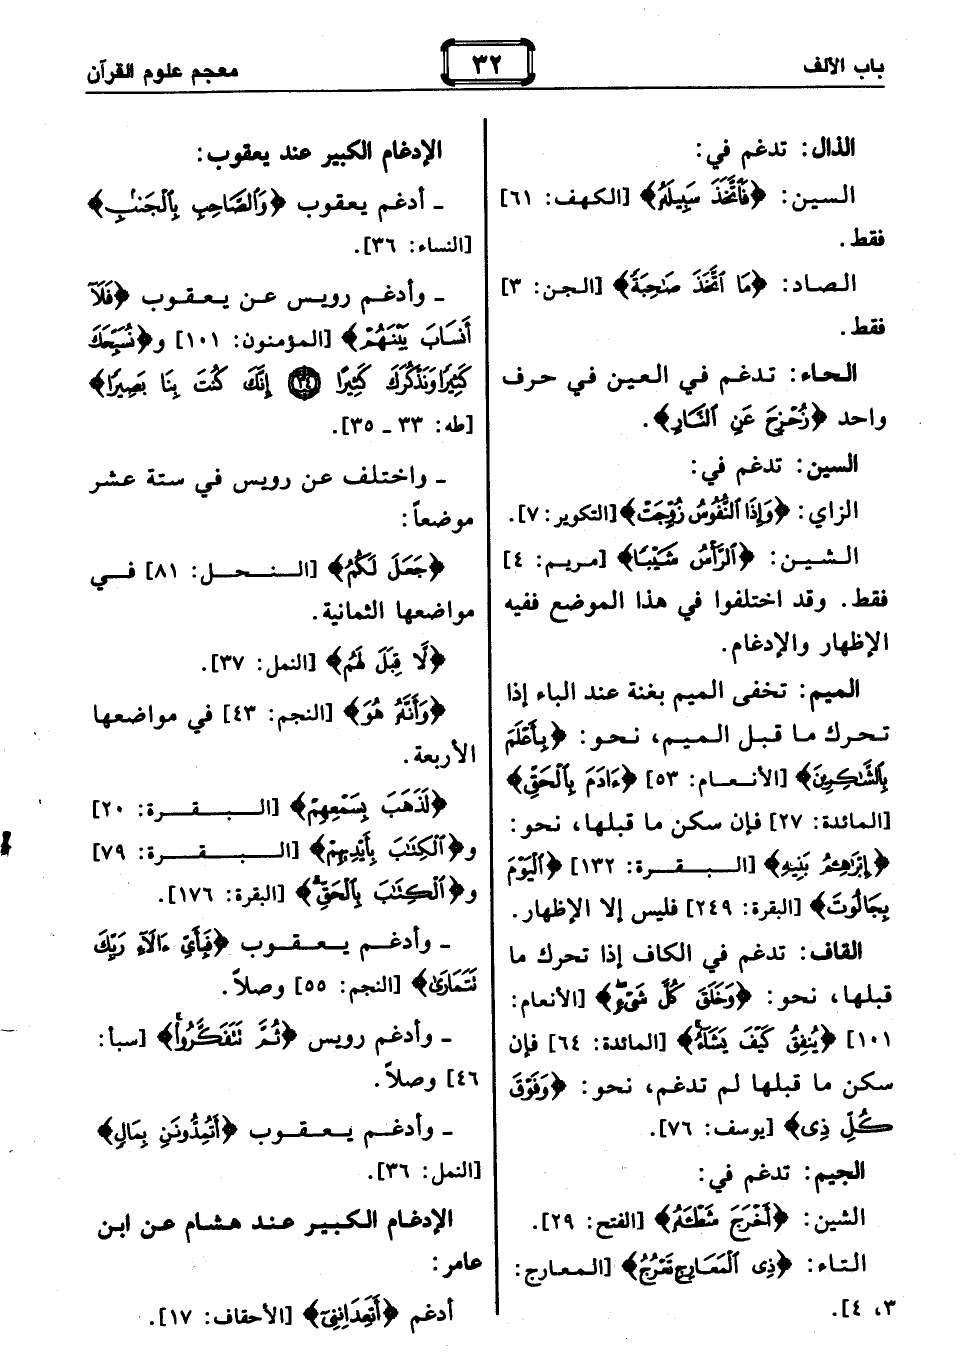 باب الألف
٣٢
معجم علوم القرآن
الذال: تدغم في:
السين: ﴿فَٱتَّخَذَ سَبِيلَهُۥ﴾ [الكهف: ٦١]
فقط.
الصاد: ﴿مَا ٱتَّخَذَ صَٰحِبَةً﴾ [الجن: ٣]
فقط.
الحاء: تدغم في العين في حرف
واحد ﴿زُحْزِحَ عَنِ ٱلنَّارِ﴾.
السين: تدغم في:
الزاي: ﴿وَإِذَا ٱلنُّفُوسُ زُوِّجَتْ﴾ [التكوير: ٧].
الشين: ﴿ٱلرَّأْسُ شَيْبًا﴾ [مريم: ٤]
فقط. وقد اختلفوا في هذا الموضع ففيه
الإظهار والإدغام.
الميم: تخفى الميم بغنة عند الباء إذا
تحرك ما قبل الميم، نحو: ﴿بِأَعْلَمَ
بِٱلشَّٰكِرِينَ﴾ [الأنعام: ٥٣] ﴿ءَادَمَ بِٱلْحَقِّ﴾
[المائدة: ٢٧] فإن سكن ما قبلها، نحو:
﴿إِبْرَٰهِۦمُ بَنِيهِ﴾ [البقرة: ١٣٢] ﴿ٱلْيَوْمَ
بِجَالُوتَ﴾ [البقرة: ٢٤٩] فليس إلا الإظهار.
القاف: تدغم في الكاف إذا تحرك ما
قبلها، نحو: ﴿وَخَلَقَ كُلَّ شَىْءٍ﴾ [الأنعام:
١٠١] ﴿يُنفِقُ كَيْفَ يَشَآءُ﴾ [المائدة: ٦٤] فإن
سكن ما قبلها لم تدغم، نحو: ﴿وَفَوْقَ
كُلِّ ذِى﴾ [يوسف: ٧٦].
الجيم: تدغم في:
الشين: ﴿أَخْرَجَ شَطْـَٔهُۥ﴾ [الفتح: ٢٩].
التاء: ﴿ذِى ٱلْمَعَارِجِ تَعْرُجُ﴾ [المعارج:
٣، ٤].
الإدغام الكبير عند يعقوب:
ـ أدغم يعقوب ﴿وَٱلصَّاحِبِ بِٱلْجَنۢبِ﴾
[النساء: ٣٦].
ـ وأدغم رويس عن يعقوب ﴿فَلَآ
أَنسَابَ بَيْنَهُمْ﴾ [المؤمنون: ١٠١] و﴿نُسَبِّحَكَ
كَثِيرًا وَنَذْكُرَكَ كَثِيرًا ٣٤ إِنَّكَ كُنتَ بِنَا بَصِيرًا﴾
[طه: ٣٣ ـ ٣٥].
ـ واختلف عن رويس في ستة عشر
موضعاً:
﴿جَعَلَ لَكُم﴾ [النحل: ٨١] في
مواضعها الثمانية.
﴿لَّا قِبَلَ لَهُم﴾ [النمل: ٣٧].
﴿وَأَنَّهُۥ هُوَ﴾ [النجم: ٤٣] في مواضعها
الأربعة.
﴿لَذَهَبَ بِسَمْعِهِمْ﴾ [البقرة: ٢٠]
و﴿ٱلْكِتَٰبَ بِأَيْدِيهِمْ﴾ [البقرة: ٧٩]
و﴿ٱلْكِتَٰبَ بِٱلْحَقِّ﴾ [البقرة: ١٧٦].
ـ وأدغم يعقوب ﴿فَبِأَىِّ ءَالَآءِ رَبِّكَ
تَتَمَارَىٰ﴾ [النجم: ٥٥] وصلاً.
ـ وأدغم رويس ﴿ثُمَّ تَتَفَكَّرُوا۟﴾ [سبأ:
٤٦] وصلاً.
ـ وأدغم يعقوب ﴿أَتُمِدُّونَنِ بِمَالٍ﴾
[النمل: ٣٦].
الإدغام الكبير عند هشام عن ابن
عامر:
أدغم ﴿أَتَعِدَانِنِىٓ﴾ [الأحقاف: ١٧].